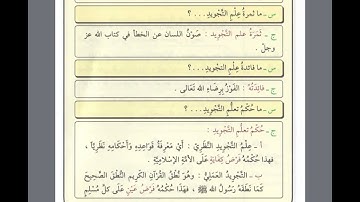 س - ما ثمرةُ عِلْمِ التَّجْوِيدِ . . . ؟
ج - ثَمَرَةُ علم التَّجْوِيد : صَوْنُ اللسان عن الخطأ في كتاب الله عز
وجلَّ .
س - ما فائدةُ عِلْمِ التجويدِ . . . ؟
ج - فَائدَتُهُ : الفَوْزُ بِرِضَاءِ الله تَعَالى .
س - ما حُكْمُ تعلُّمِ التَّجْوِيْدِ . . . ؟
ج - حُكْمُ تعلُّمِ التَّجْوِيد :
أ - عِلْمُ التَّجْوِيْدِ النَّظَرِيّ : أَيْ مَعْرِفَةُ قَوَاعِدِهِ وَأَحْكَامِهِ نَظَرِيّاً ،
فَهذَا حُكْمُهُ فَرْضُ كِفَايَةٍ عَلَى الأُمَّةِ الإسْلَامِيَّةِ .
ب - التَّجْوِيْدُ العَمَلِيُّ : وَهُوَ نُطْقُ القُرْآنِ الكَرِيمِ النُّطْقَ الصَّحِيحَ
كَمَا نَطَقَهُ رَسُولُ الله ﷺ ، فَهذَا حُكْمُهُ فَرْضُ عَيْنٍ عَلَى كلِّ مُسْلِمٍ